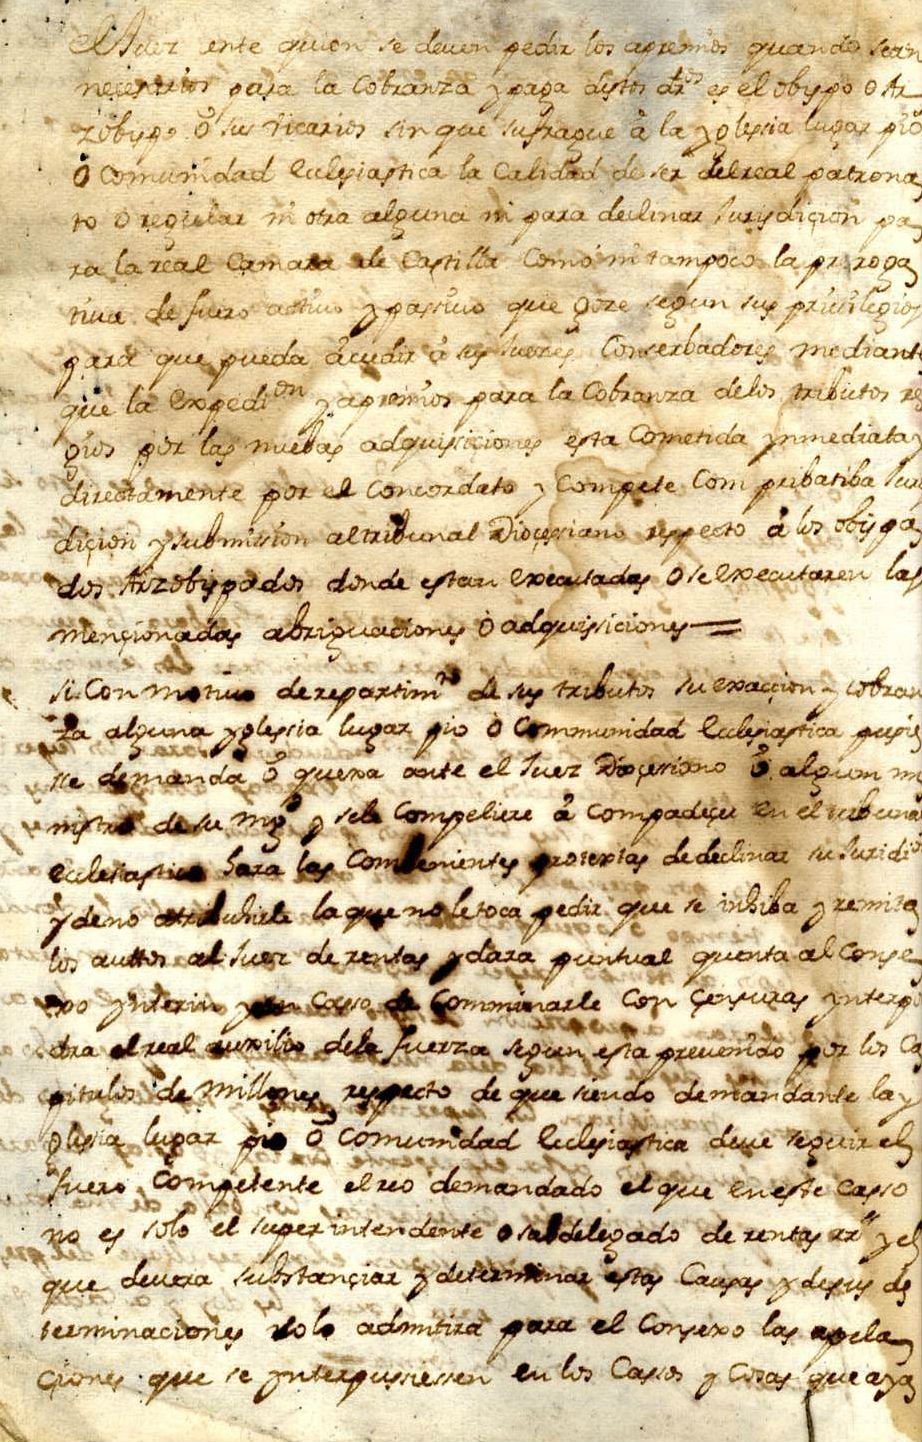 el Juez ente quien se deven pedir los apremios quando sean
necesarios para la Cobranza y paga destos drõs es el obispo o Ar
zobispo ó sus vicarios sin que sufrague à la yglesia lugar pio
ó comunidad Eclesiastica la Calidad de ser del real patrona
to o regular ni otra alguna ni para declinar Jurisdiçion pa
ra la real Camara de Castilla Como ni tampoco la prroga
tiva de fuero activo y passivo que goze segun sus privilegios
para que pueda àcudir à sus Jueces Conserbadores mediante
que la Expedion y apremios para la Cobranza de los tributos re
gios por las nuebas adquisiciones esta Cometida ynmediata y
directamente por el Concordato y Compete Com pribatiba Juris
diçion y submission al tribunal Dioçesiano respecto à los obispa
dos Arzobispados donde estan Executadas o se Executaren las
mençionadas abriguaciones ò adquisiciones =
si Con motivo de repartimto de sus tributos su exaccion y cobran
za alguna yglesia lugar pio ò Communidad Eclesiastica pusie
sse demanda ò quexa ante el Juez Dioçesiano ò algun mi
nistro de su Mgd y sele Compeliere à Compadeçer en el tribunal
Ecclesiastico hara las Combenientes protextas de declinar su Juridion
y de no atribuhirle la que no le toca pedir que se inhiba y remita
los auttos al Juez de rentas y dara puntual quenta al Conse
xo ynterin y en Casso de Comminarle Con Çensuras ynterpo
dra el real auxilio de la fuerza segun esta prevenido por los Ca
pitulos de Millones respecto de que siendo demandante la y
glesia lugar pio ò Comunidad Eclesiastica deve seguir el
fuero Competente el reo demandado el que en este Casso
no es solo el superintendente o subdelegado de rentas rrs y el
que devera substançiar y determinar estas Causas y de sus de
terminaciones solo admitira para el Consexo las apela
çiones que se ynterpussiessen en los Cassos y Cosas que aya